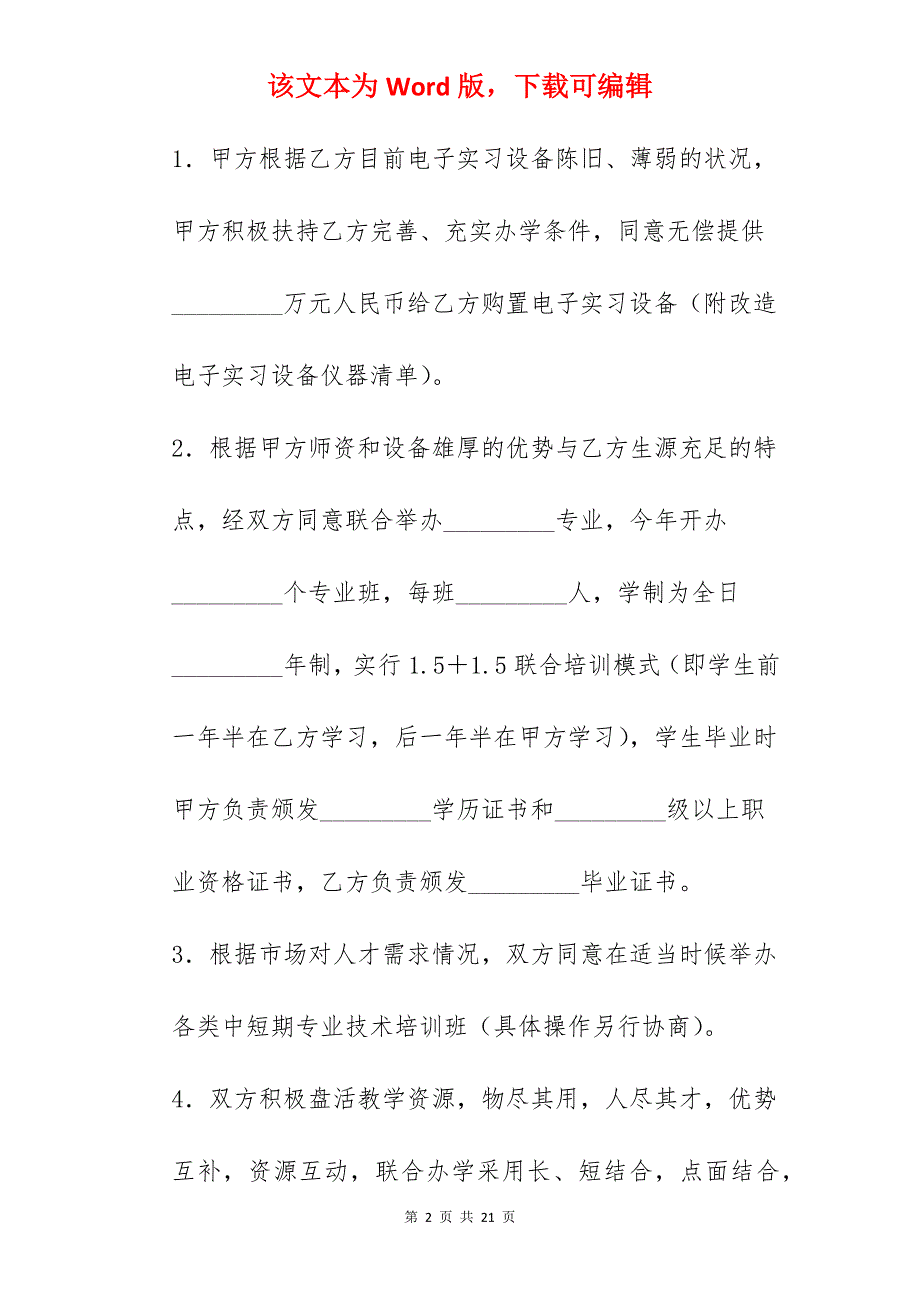 该文本为 Word 版，下载可编辑
1．甲方根据乙方目前电子实习设备陈旧、薄弱的状况，
甲方积极扶持乙方完善、充实办学条件，同意无偿提供
_________万元人民币给乙方购置电子实习设备（附改造
电子实习设备仪器清单）。
2．根据甲方师资和设备雄厚的优势与乙方生源充足的特
点，经双方同意联合举办_________专业，今年开办
_________个专业班，每班_________人，学制为全日
_________年制，实行 1.5＋1.5 联合培训模式（即学生前
一年半在乙方学习，后一年半在甲方学习），学生毕业时
甲方负责颁发_________学历证书和_________级以上职
业资格证书，乙方负责颁发_________毕业证书。
3．根据市场对人才需求情况，双方同意在适当时候举办
各类中短期专业技术培训班（具体操作另行协商）。
4．双方积极盘活教学资源，物尽其用，人尽其才，优势
互补，资源互动，联合办学采用长、短结合，点面结合，
第 2 页 共 21 页